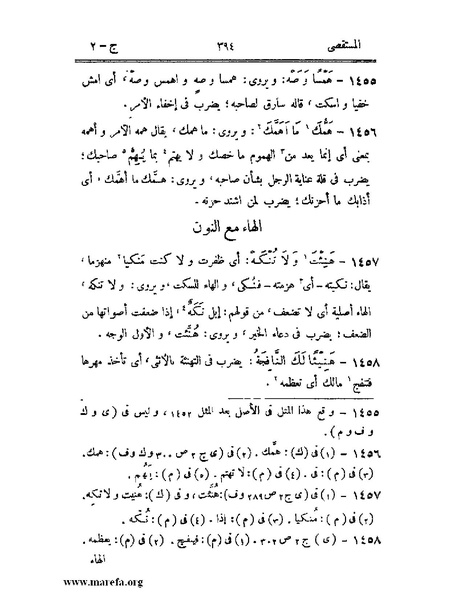 المستقصى ٣٩٤ ج – ٢
١٤٥٥ – هَمْسًا وَصَهْ: ويروى: همسا وصه واهمس وصه، أى امش
خفيا و اسكت، قاله سارق لصاحبه؛ يضرب فى إخفاء الأمر.
١٤٥٦ – هَمُّكَ ١ مَا أَهَمَّكَ ٢: ويروى: ما همك، يقال همه الأمر و أهمه
بمعنى أى إنما يعد من ٣ الهموم ما خصك و لا يهتم ٤ بما يُهِمُّ ٥ صاحبك؛
يضرب فى قلة عناية الرجل بشأن صاحبه، و يروى: همّك ما أهمّك، أى
أذابك ما أحزنك؛ يضرب لمن اشتد حزنه.
الهاء مع النون
١٤٥٧ – هَنِيْتَ ١ وَ لَا تُنْكَهْ: أى ظفرت و لا كنت مَنكيا ٢ منهزما،
يقال: نكيته – أى ٣ هزمته – فنُكى، و الهاء للسكت، و يروى: و لا تنكه،
الهاء أصلية أى لا تضعف، من قولهم: إبل نُكَّهٌ ٤، إذا ضعفت أصواتها من
الضعف؛ يضرب فى دعاء الخير، و يروى: هُنِّئْتَ، و الأول الوجه.
١٤٥٨ – هَنِيْئًا لَكَ النَّافِجَةُ: يضرب فى التهنئة بالأنثى، أى تأخذ مهرها
فتنفج ١ مالك أى تعظمه ٢.
١٤٥٥ – و قع هذا المثل فى الأصل بعد المثل ١٤٥٢، وليس فى (ى و ك
و ف و م).
١٤٥٦ – (١) فى (ك): همَّك. (٢) فى (ى ج ٢ ص ٣٠٠ و ك و ف): همك.
(٣) فى (م): فى. (٤) فى (م): لا تهتم. (٥) فى (م): يَهُم.
١٤٥٧ – (١) فى (ى ج ٢ ص ٢٨٩ و ف): هُنِّئت، و فى (ك): هُنيت ولا تكه.
(٢) فى (م): مُنكيا. (٣) فى (م): إذا. (٤) فى (م): نُكَه.
١٤٥٨ – (ى) ج ٢ ص ٣٠٢. (١) فى (م): فينفج. (٢) فى (م): يعظمه.
الهاء
www.marefa.org